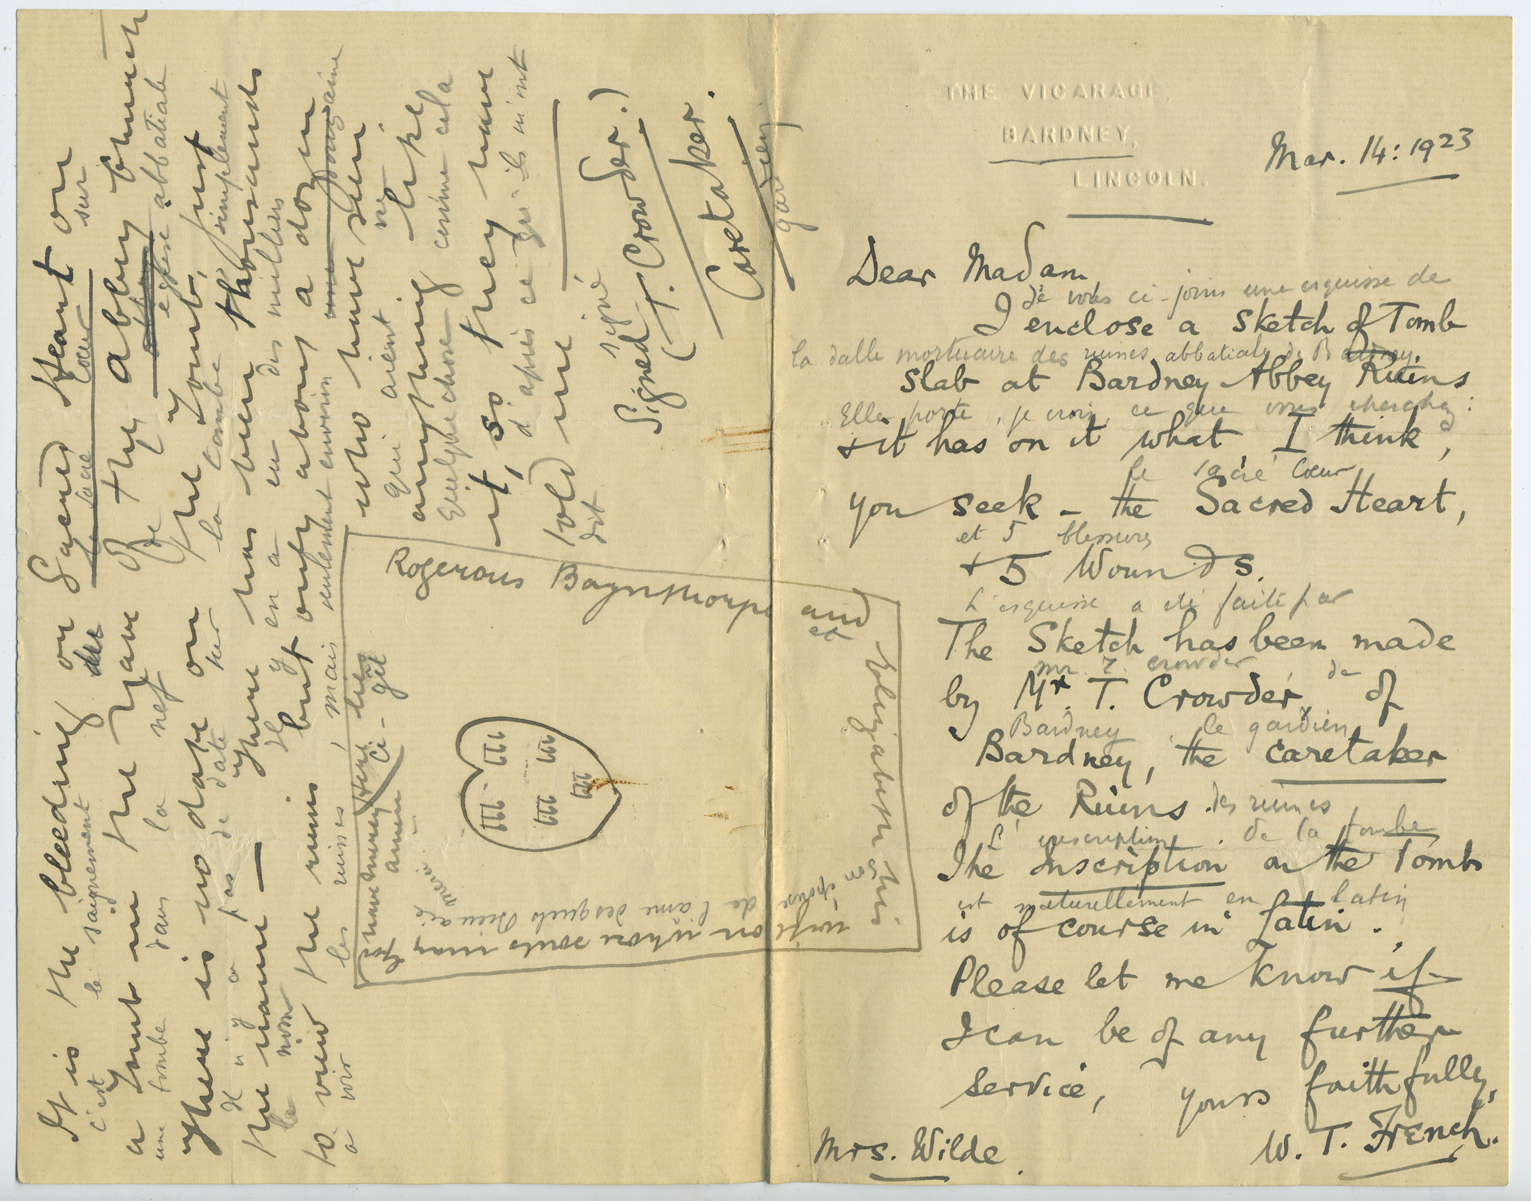 THE VICARAGE,
BARDNEY,
LINCOLN.
Mar. 14: 1923
Dear Madam
Je vous ci-joins une esquisse de
I enclose a Sketch of Tomb
la dalle mortuaire des ruines abbatiales de Bardney.
Slab at Bardney Abbey Ruins
Elle porte, je crois, ce que vous cherchez:
+ it has on it what, I think,
le sacré Cœur
you seek – the Sacred Heart,
et 5 blessures
+ 5 Wounds.
L'esquisse a été faite par
The Sketch has been made
mr T. Crowder de
by Mr. T. Crowder, of
Bardney, le gardien
Bardney, the caretaker
of the Ruins. des ruines
L'inscription de la tombe
The inscription on the Tomb
est naturellement en latin
is of course in Latin.
Please let me know if
I can be of any further
service, yours faithfully,
W. T. French.
Mrs. Wilde
It is the bleeding or Sacred Heart on
c'est le saignement des Sacré Cœur sur
a Tomb in the Nave of the abbey church
une tombe dans la nef de église abbatiale
There is no date on the Tomb, just
Il n'y a pas de date sur la tombe simplement
the name — There has been thousands
le nom Il y en a eu des milliers
to view the ruins but only about a dozen
à voir les ruines, mais seulement environ douzaine
who have seen
qui aient
anything like
Quelque chose comme cela
it, so they have
d'après ce qu'ils m'ont
told me
dit
Signed signé
(T. Crowder.)
Caretaker.
gardien
Rogerous Baynthorpe and
et
Elizabeth his
son épouse
wife on whose souls may
de l'ame desquels
God have mercy Here lies
amen ci-gît